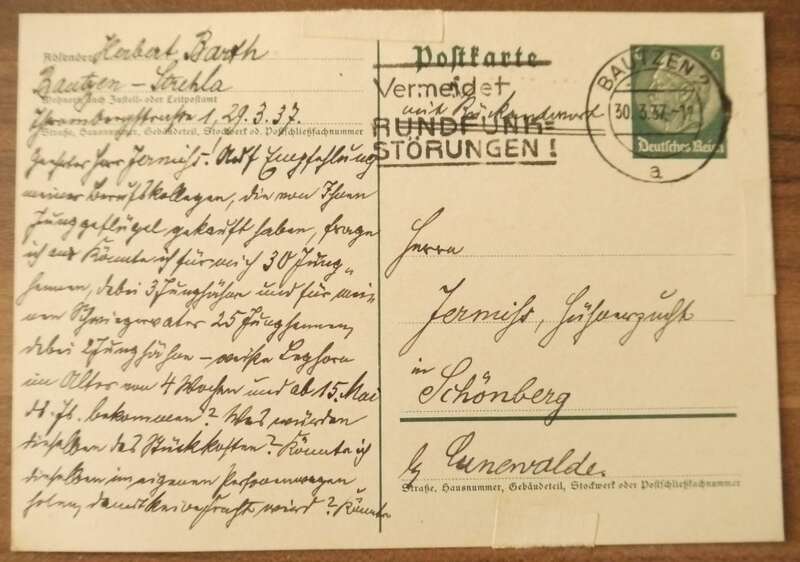 Absender: Herbert Barth
Bautzen – Strehla
Wohnort, auch Zustell- oder Leitpostamt
1, 29.3.37.
Straße, Hausnummer, Gebäudeteil, Stockwerk od. Postschließfachnummer
Geehrter Herr Jermiß! Auf Empfehlung
meiner Berufskollegen, die von Ihnen
Junggeflügel gekauft haben, frage
ich an: Könnte ich für mich 30 Jung-
hennen, dabei 3 Junghähne und für mei-
nen Schwiegervater 25 Junghennen,
dabei 2 Junghähne – weiße Leghorn
im Alter von 4 Wochen und ab 15. Mai
ds. Js. bekommen? Was würden
dieselben das Stück kosten? Könnte ich
dieselben im eigenen Personenwagen
holen, damit keine Fracht wird? Könnte
Postkarte
mit Rückantwort
Vermeidet
RUNDFUNK-
STÖRUNGEN!
BAUTZEN 2
30.3.37.
a
6
Deutsches Reich
Herrn
Jermiß, Hühnerzucht
in
Schönberg
b/ Cunewalde.
Straße, Hausnummer, Gebäudeteil, Stockwerk oder Postschließfachnummer